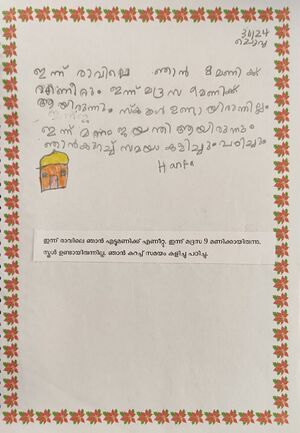 31/1/24
ഇന്ന് രാവിലെ ഞാൻ 8 മണിക്ക്
എണീറ്റും ഇന്ന് മദ്രസ 9 മണിക്ക്
ആയിരുന്നും സ്കൂൾ ഉണ്ടായിരുന്നില്ലം
ഇന്ന് ജയന്തി ആയിരുന്നും
ഞാൻ കുറച്ച് സമയം കളിച്ചും പഠിച്ചും
ഇന്ന് രാവിലെ ഞാൻ എട്ടുമണിക്ക് എണീറ്റു. ഇന്ന് മദ്രസ 9 മണിക്കായിരുന്നു.
സ്കൂൾ ഉണ്ടായിരുന്നില്ല. ഞാൻ കുറച്ച് സമയം കളിച്ചു പഠിച്ചു.